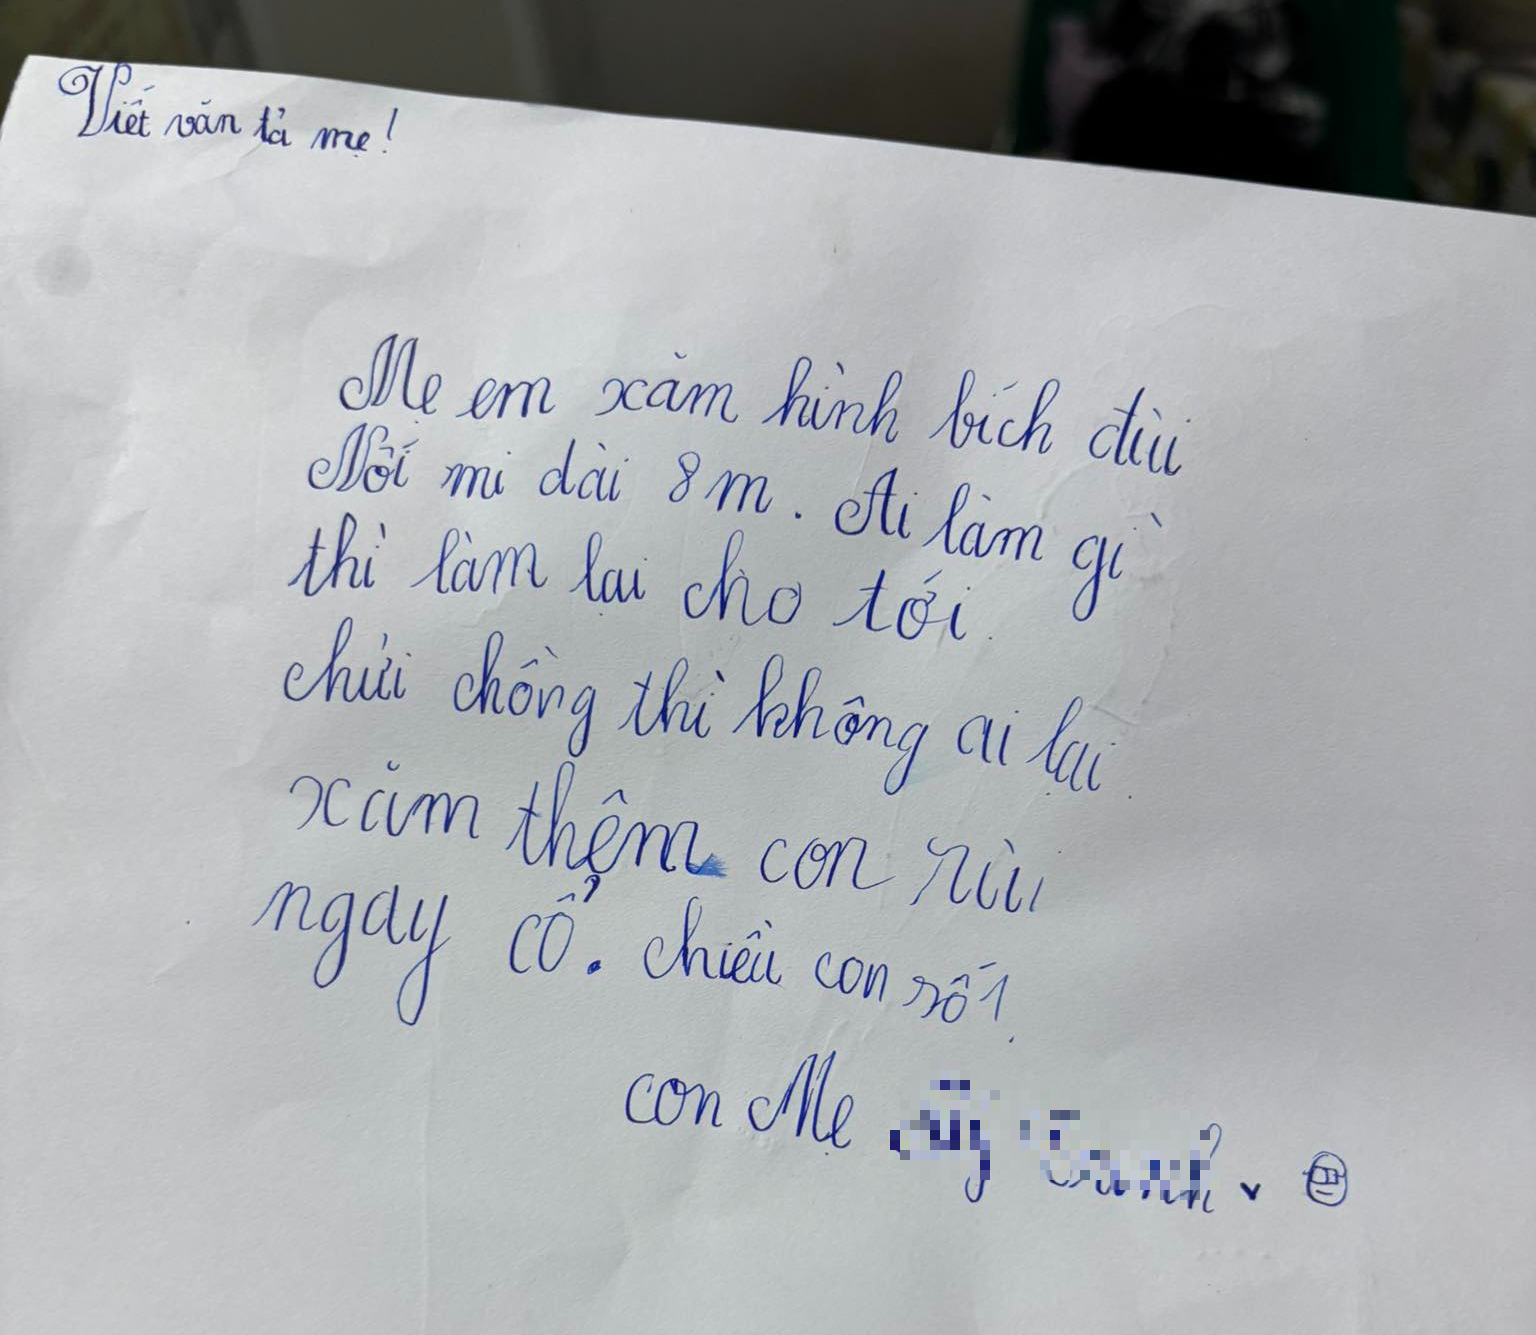 Viết văn tả mẹ!
Mẹ em xăm hình bích đùi
Nối mi dài 8m. Ai làm gì
thì làm lại cho tới.
chửi chồng thì không ai lại.
xăm thêm con rùi
ngay cổ. chiều con số 1.
con Mẹ